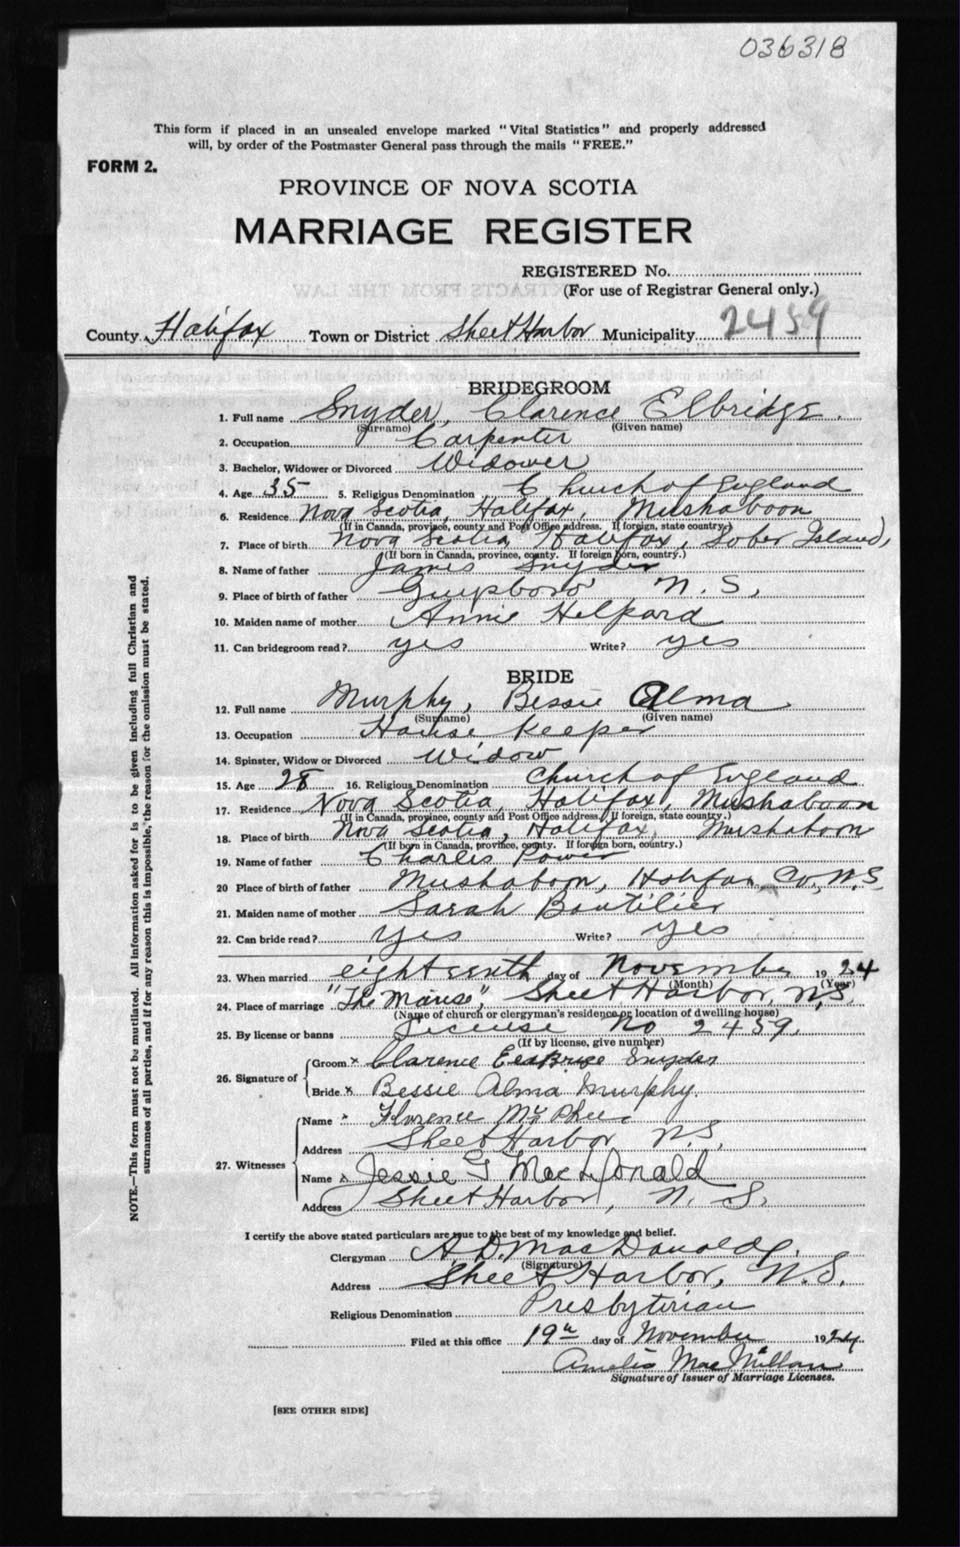 036318
This form if placed in an unsealed envelope marked "Vital Statistics" and properly addressed
will, by order of the Postmaster General pass through the mails "FREE."
FORM 2.
PROVINCE OF NOVA SCOTIA
MARRIAGE REGISTER
REGISTERED No.
(For use of Registrar General only.)
County Halifax Town or District Sheet Harbor Municipality 2459
BRIDEGROOM
1. Full name Snyder, Clarence Elbridge.
(Surname) (Given name)
2. Occupation Carpenter
3. Bachelor, Widower or Divorced Widower
4. Age 35 5. Religious Denomination Church of England
6. Residence Nova Scotia, Halifax, Mushaboon
(If in Canada, province, county and Post Office address. If foreign, state country.)
7. Place of birth Nova Scotia, Halifax, Sober Island,
(If born in Canada, province, county. If foreign born, country.)
8. Name of father James Snyder
9. Place of birth of father Guysboro N.S.
10. Maiden name of mother Annie Helpard
11. Can bridegroom read? yes Write? yes
BRIDE
12. Full name Murphy, Bessie Alma
(Surname) (Given name)
13. Occupation House keeper
14. Spinster, Widow or Divorced Widow
15. Age 28 16. Religious Denomination Church of England
17. Residence Nova Scotia, Halifax, Mushaboon
(If in Canada, province, county and Post Office address. If foreign, state country.)
18. Place of birth Nova Scotia, Halifax, Mushaboon
(If born in Canada, province, county. If foreign born, country.)
19. Name of father Charles Power
20 Place of birth of father Mushaboon, Halifax Co., N.S.
21. Maiden name of mother Sarah Boutilier
22. Can bride read? yes Write? yes
23. When married eighteenth day of November 1924
(Month) (Year)
24. Place of marriage "The Manse", Sheet Harbor, N.S.
(Name of church or clergyman's residence or location of dwelling house)
25. By license or banns License No 2459.
(If by license, give number)
26. Signature of Groom x Clarence Snyder
Bride x Bessie Alma Murphy.
27. Witnesses Name x Florence McPhee
Address Sheet Harbor, N.S.
Name x Jessie G MacDonald
Address Sheet Harbor, N.S.
I certify the above stated particulars are true to the best of my knowledge and belief.
Clergyman A.D. MacDonald.
(Signature)
Address Sheet Harbor, N.S.
Religious Denomination Presbyterian
Filed at this office 19th day of November 1924
Amelia MacMillan
Signature of Issuer of Marriage Licenses.
[SEE OTHER SIDE]
NOTE.—This form must not be mutilated. All information asked for is to be given including full Christian and
surnames of all parties, and if for any reason this is impossible, the reason for the omission must be stated.